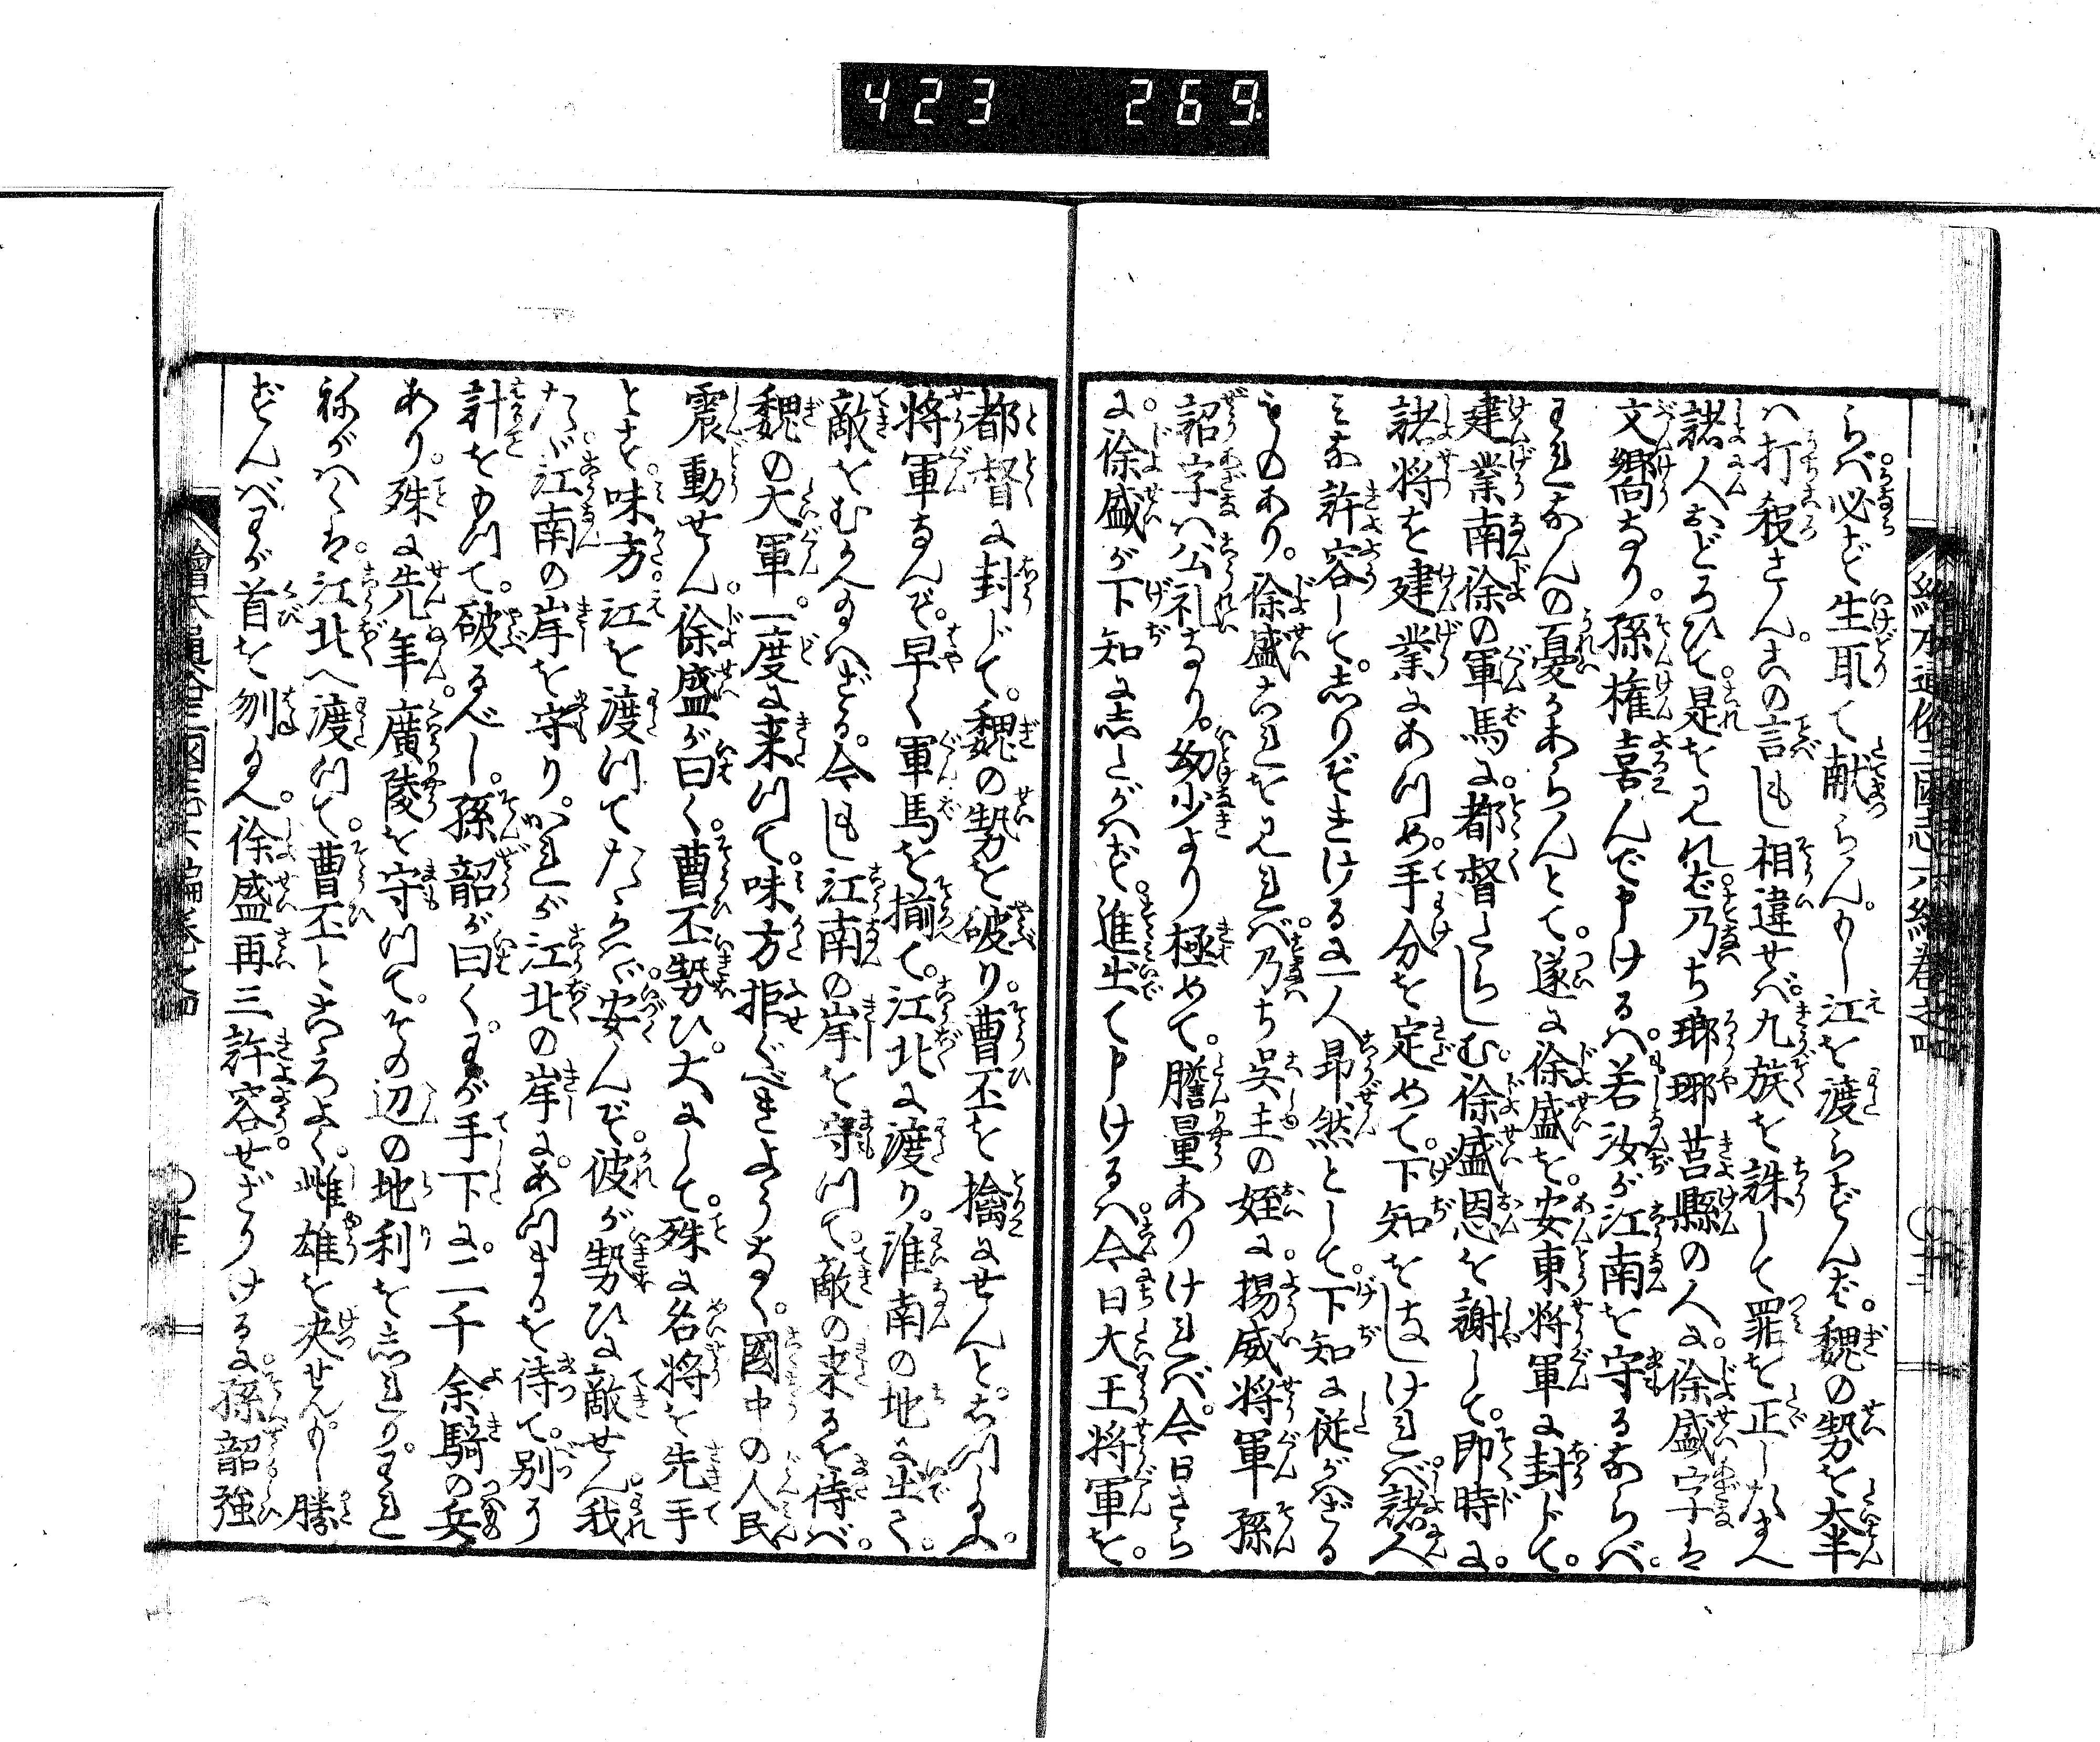 423 269
繪本通俗三國志六編卷之四
らば必ず生取て献らん。もし江を渡らずんば。魏の勢を大半
ハ打殺さん。この言もし相違せば。九族を誅して罪を正したまへ
諸人おどろひて。是を見れば。乃ち瑯琊莒縣の人に。徐盛字は
文嚮なり。孫権喜んで申けるハ。若汝が江南を守るならバ。
われなんの憂かあらんとて。遂に徐盛を。安東将軍に封じて。
建業南徐の軍馬に。都督たらしむ。徐盛恩を謝して。即時に。
諸将を建業にあつめ。手分を定めて。下知をなしけれバ。諸人
ミな許容して。しりぞきけるに一人昂然として。下知に従がハざる
ものあり。徐盛これを見れバ。乃ち呉主の姪に。揚威将軍孫
詔字ハ公礼なり。幼少より極めて。膽量ありけれバ。今日さら
に。徐盛が下知にしたがハず。進出て申けるハ。今日大王将軍を。
都督に封じて。魏の勢を破り。曹丕を擒にせんと。しつるよ。
将軍なんぞ。早く軍馬を揃て。江北に渡り。淮南の地に出て。
敵をむかへ給ハざる。今もし江南の岸を守つて。敵の来るを待バ。
魏の大軍。一度に来つて。味方拒ぐべきようなく。國中の人民
震動せん。徐盛が曰く。曹丕勢ひ。大にして。殊に名将を先手
とす。味方江を渡つてたゝかハゞ。安んぞ。彼が勢ひに敵せん我
たゞ。江南の岸を守り。かれが江北の岸に。あつまるを待て。別に
計をもつて。破るべし。孫韶が曰く。わが手下に。二千余騎の兵
あり。殊に先年。廣陵を守つて。その辺の地利をしれり。われ
ねがハくは。江北へ渡つて。曹丕とこゝろよく。雌雄を决せんもし勝
ずんバわが首を刎給へ。徐盛再三許容せざりけるに。孫韶強